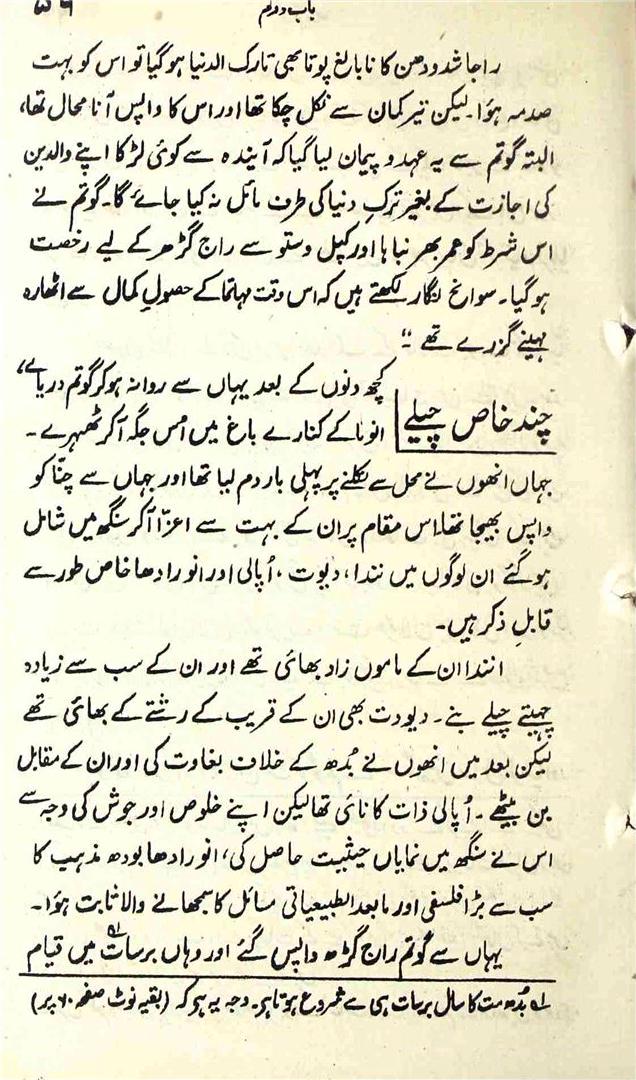 باب دوئم ۵۹
راجا شدودھن کا نابالغ پوتا بھی تارک الدنیا ہو گیا تو اس کو بہت
صدمہ ہؤا۔ لیکن تیر کمان سے نکل چکا تھا اور اس کا واپس آنا محال تھا،
البتہ گوتم سے یہ عہد و پیمان لیا گیا کہ آیندہ سے کوئی لڑکا اپنے والدین
کی اجازت کے بغیر ترکِ دنیا کی طرف مائل نہ کیا جائے گا۔ گوتم نے
اس شرط کو عمر بھر نباہا اور کپل وستو سے راج گڑھ کے لیے رخصت
ہو گیا۔ سوانح نگار لکھتے ہیں کہ اس وقت مہاتما کے حصولِ کمال سے اٹھارہ
مہینے گزرے تھے "
چند خاص چیلے
کچھ دنوں کے بعد یہاں سے روانہ ہو کر گوتم دریائے
انوما کے کنارے باغ میں اُس جگہ آکر ٹھہرے۔
جہاں انھوں نے محل سے نکلنے پر پہلی بار دم لیا تھا اور جہاں سے چنّا کو
واپس بھیجا تھا۔ اس مقام پر ان کے بہت سے اعزّا آکر سنگھ میں شامل
ہو گئے ان لوگوں میں نندا، دیوت، اُپالی اور انورادھا خاص طور سے
قابلِ ذکر ہیں۔
انندا ان کے ماموں زاد بھائی تھے اور ان کے سب سے زیادہ
چہیتے چیلے بنے۔ دیودت بھی ان کے قریب کے رشتے کے بھائی تھے
لیکن بعد میں انھوں نے بُدھ کے خلاف بغاوت کی اور ان کے مقابل
بن بیٹھے۔ اُپالی ذات کا نائی تھا لیکن اپنے خلوص اور جوش کی وجہ سے
اس نے سنگھ میں نمایاں حیثیت حاصل کی، انورادھا بودھ مذہب کا
سب سے بڑا فلسفی اور مابعد الطبیعیاتی مسائل کا سمجھانے والا ثابت ہؤا۔
یہاں سے گوتم راج گڑھ واپس گئے اور وہاں برسات۱؎ میں قیام
۱؎ بُدھ مت کا سال برسات ہی سے شروع ہوتا ہے۔ وجہ یہ ہے کہ (بقیہ نوٹ صفحہ ۶۰ پر)